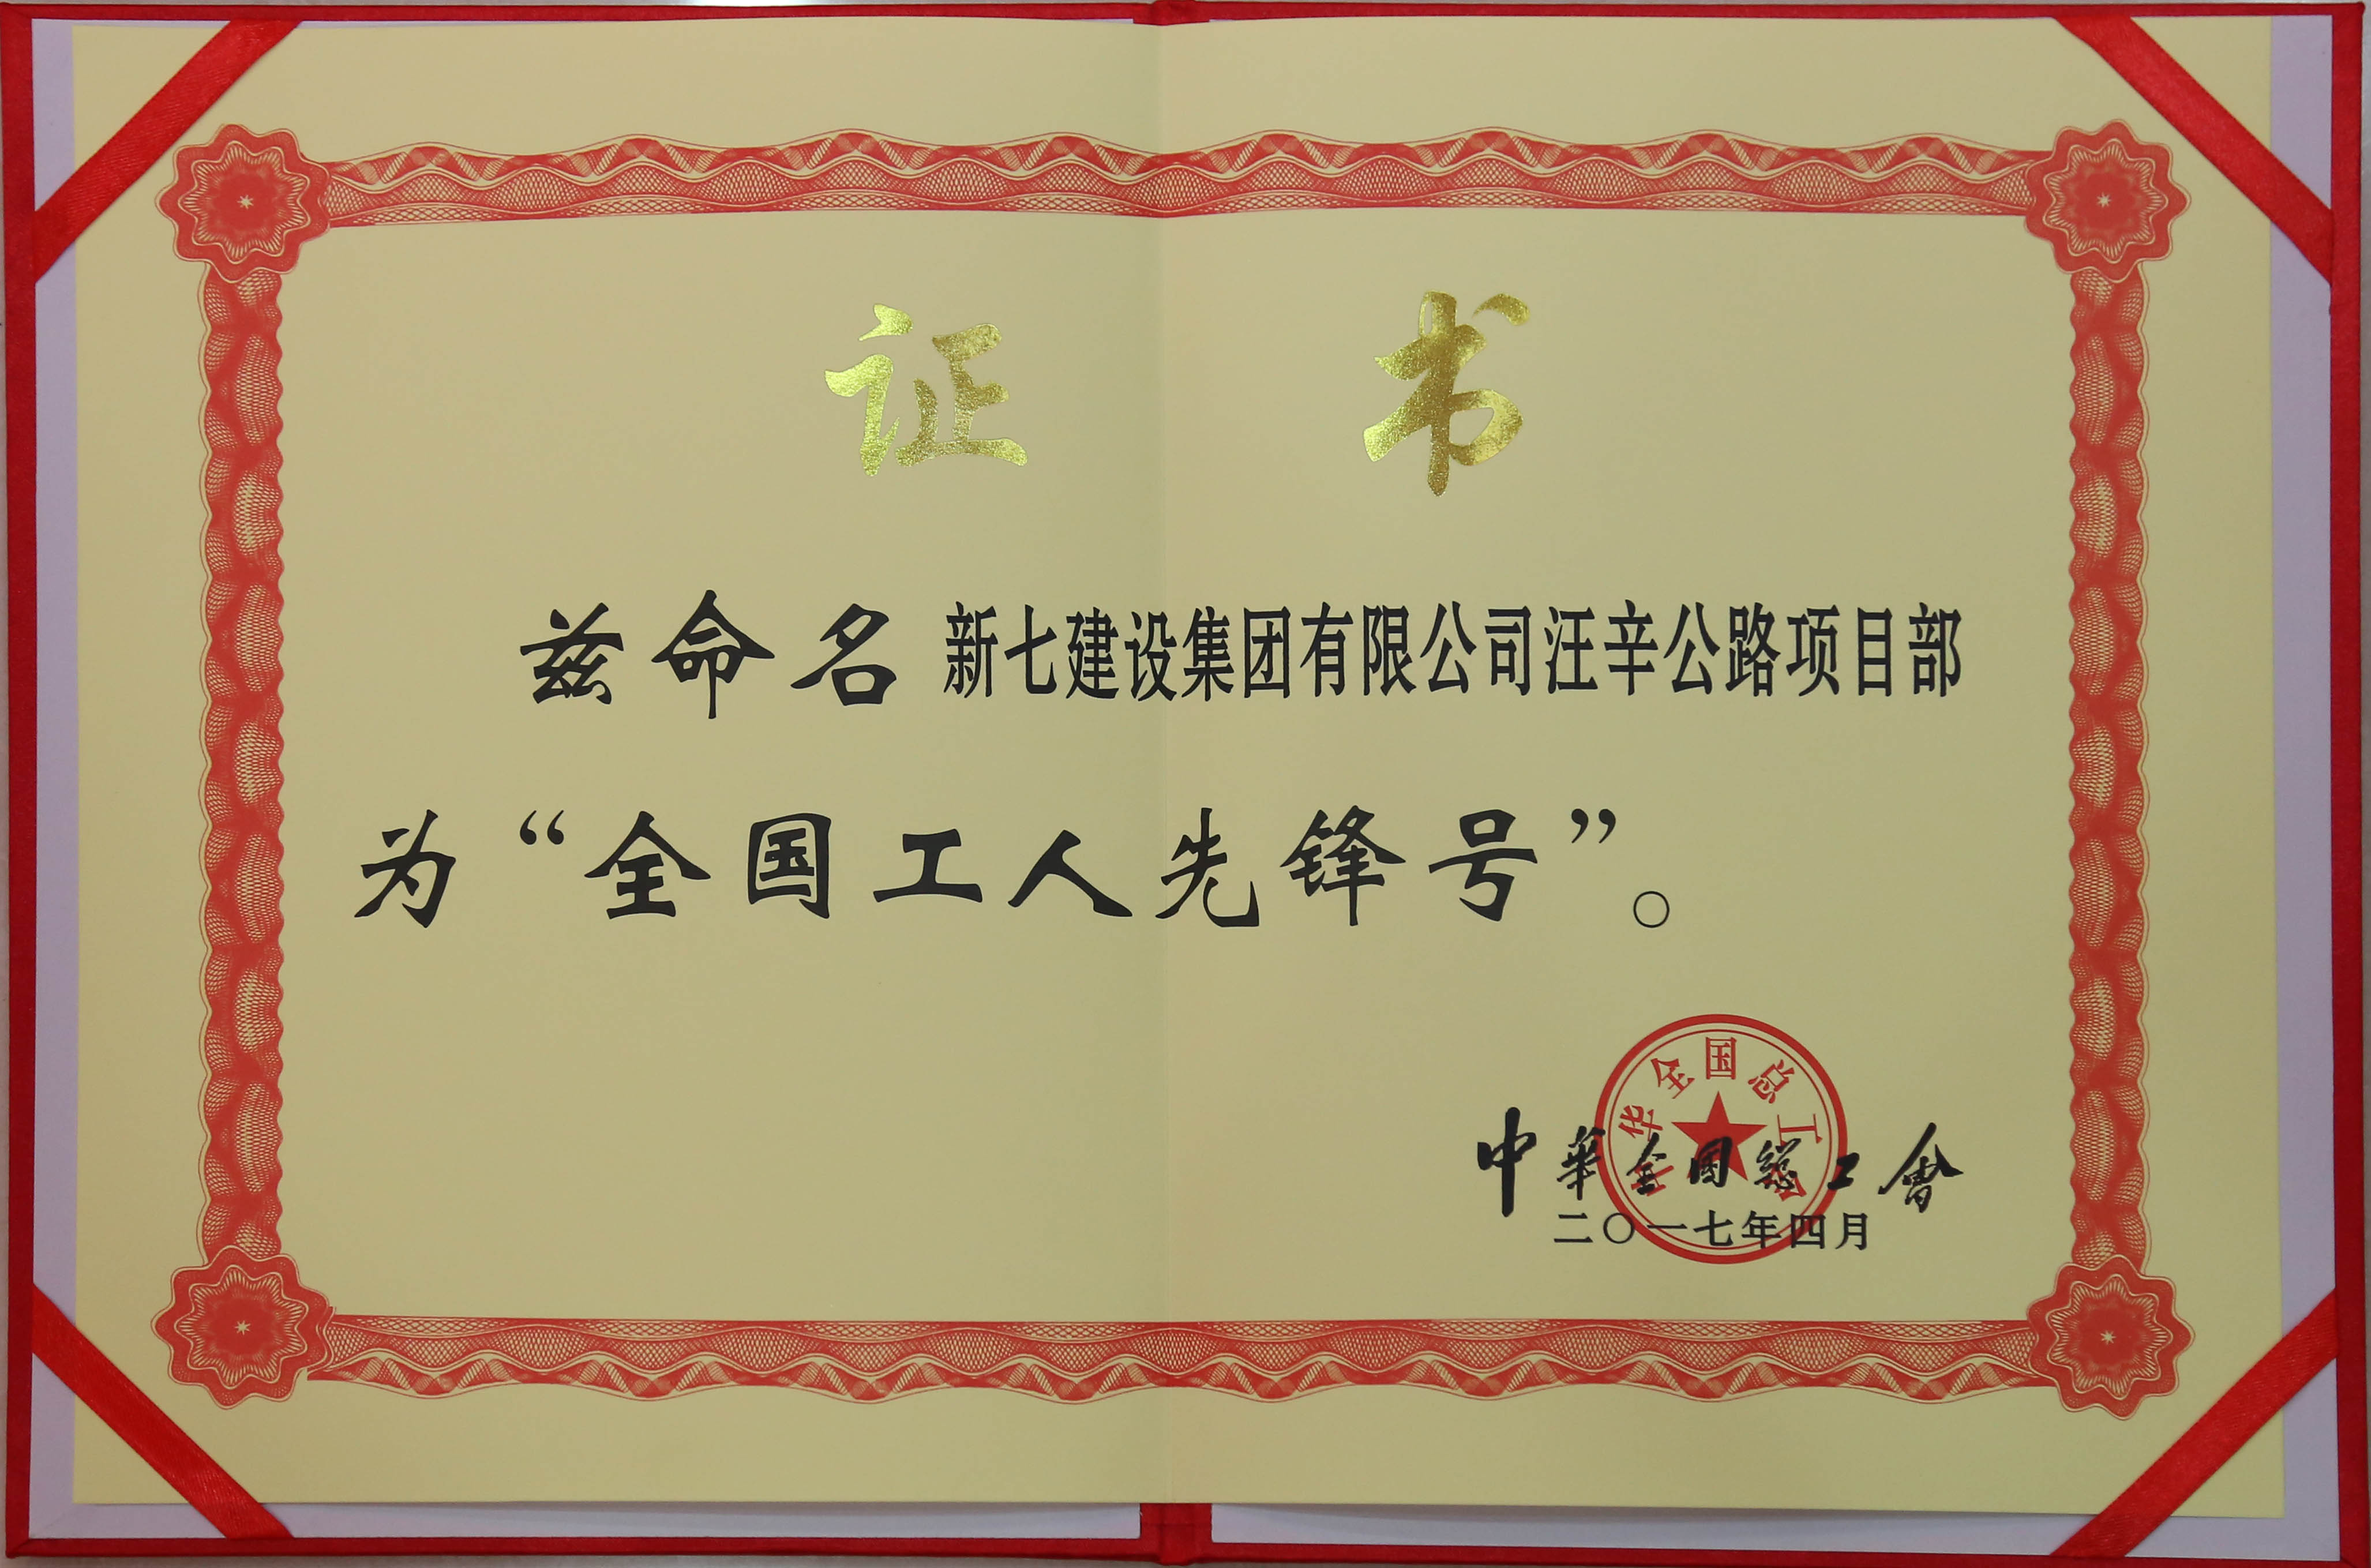 证书
兹命名新七建设集团有限公司汪辛公路项目部
为“全国工人先锋号”。
中华全国总工会
中華全國總工會
二〇一七年四月